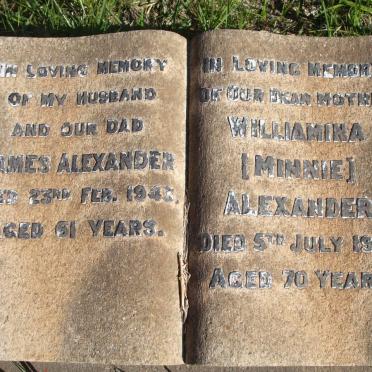 IN LOVING MEMORY
OF MY HUSBAND
AND OUR DAD
JAMES ALEXANDER
DIED 23RD FEB.
AGED 61 YEARS.
IN LOVING MEMORY
OF OUR DEAR MOTHER
WILLIAMINA
[MINNIE]
ALEXANDER
DIED 5TH JULY
AGED 70 YEARS